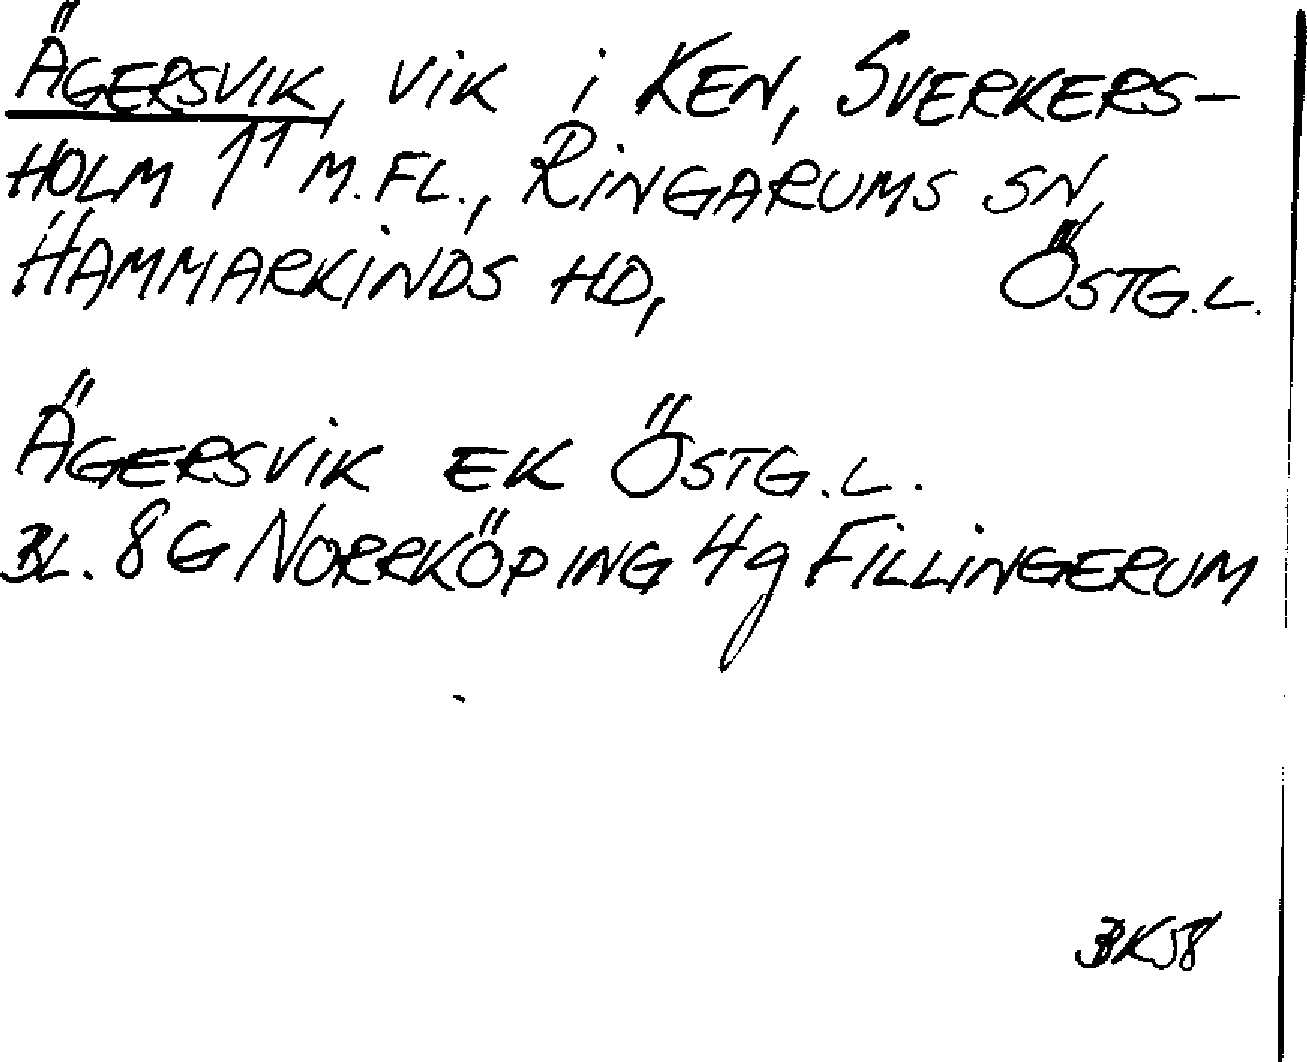 ÄGERSVIK, VIK i KEN, SVERKERS-
HOLM 1¹ M.FL., RINGARUMS SN,
HAMMARKINDS HD, ÖSTG.L.
ÄGERSVIK EK ÖSTG.L.
BL. 8G NORRKÖPING 4g FILLINGERUM
BK58